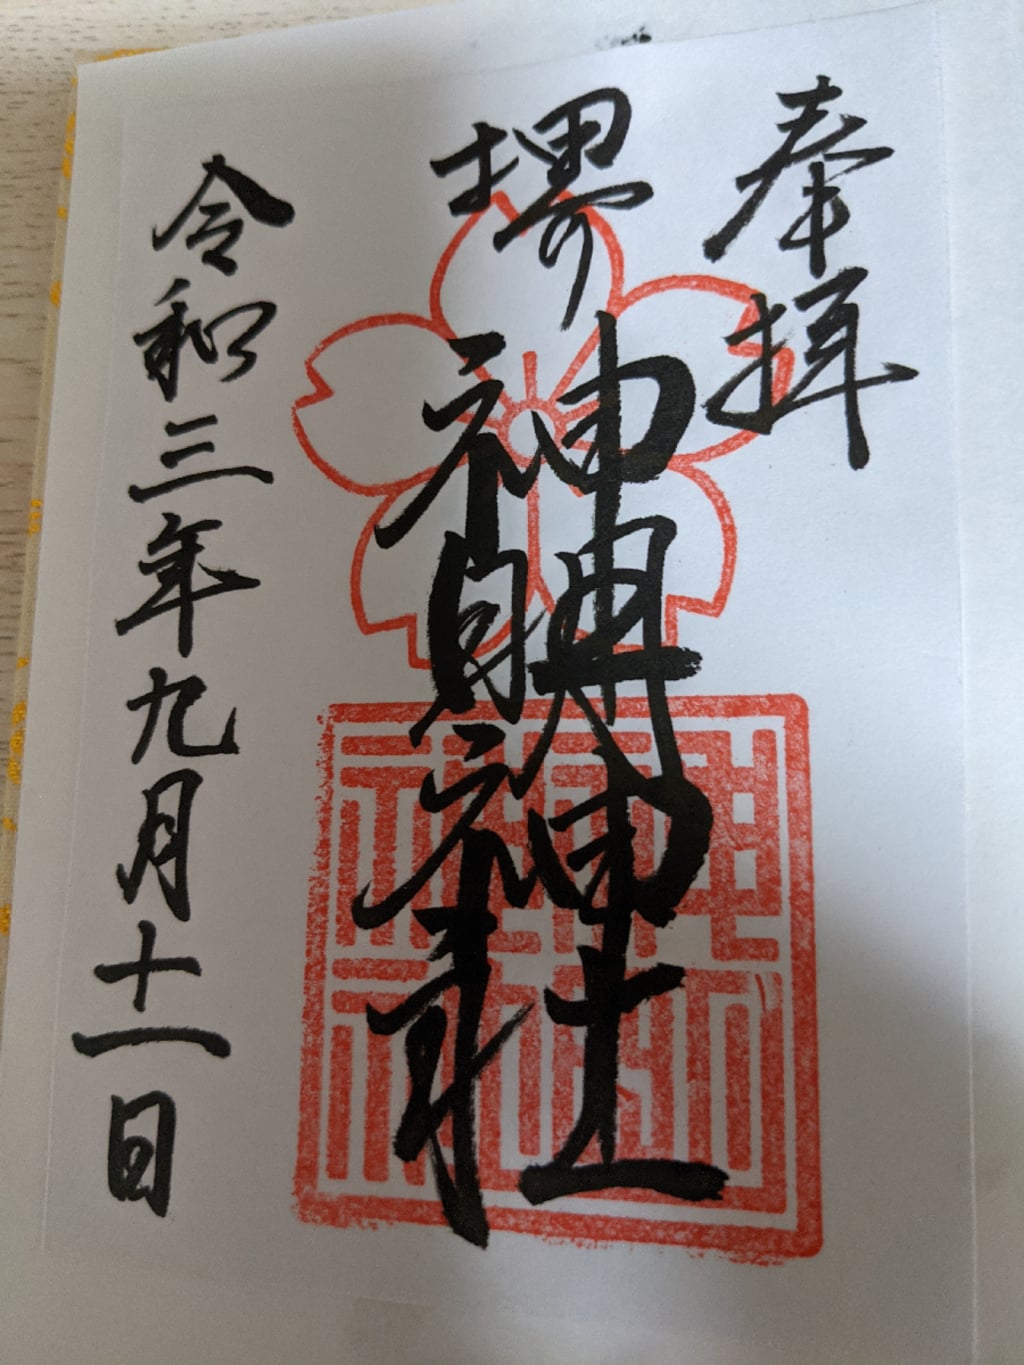 奉拝
堺
神 神社
令和三年九月十一日